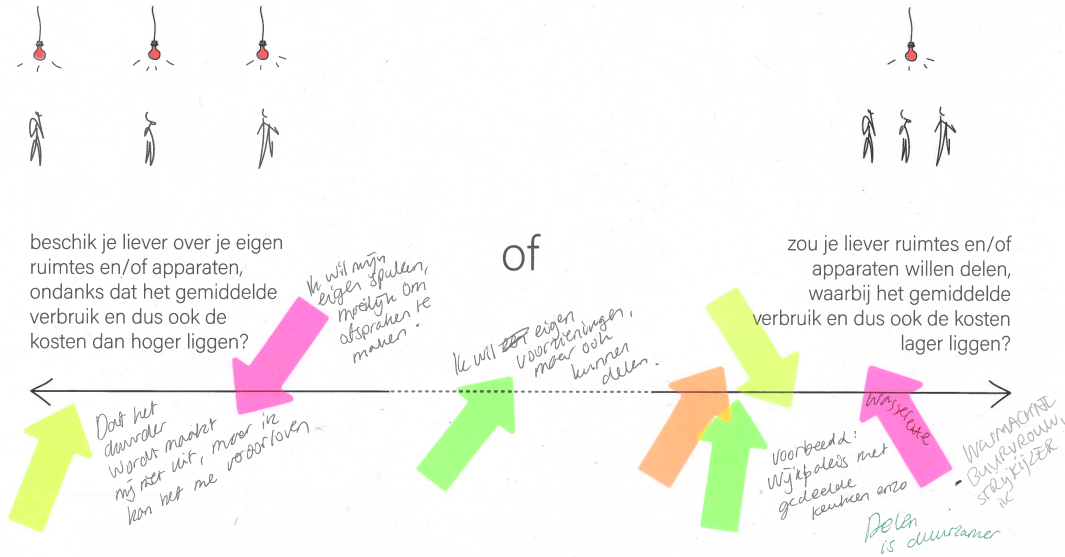 beschik je liever over je eigen
ruimtes en/of apparaten,
ondanks dat het gemiddelde
verbruik en dus ook de
kosten dan hoger liggen?
of
zou je liever ruimtes en/of
apparaten willen delen,
waarbij het gemiddelde
verbruik en dus ook de kosten
lager liggen?
Ik wil mijn
eigen spullen,
moeilijk om
afspraken te
maken.
Ik wil eigen
voorzieningen,
maar ook
kunnen
delen.
Dat het
duurder
wordt maakt
mij niet uit, maar ik
kan het me veroorloven
voorbeeld:
Wijkpaleis met
gedeelde
keuken enzo
wasserette
- WASMACHINE
BUURVROUW,
STRYKIJZER
IK
Delen
is duurzamer